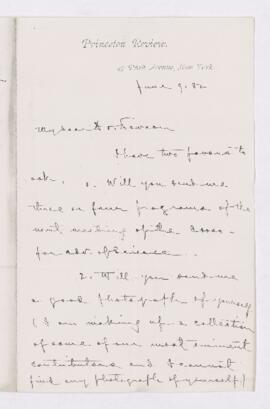 Princeton Review.
Park Avenue, New York
June 9. 82
My dear
I have two favors to
ask. 1. Will you send me
three or four programs of the
next meeting of the Asso.
for adv. of science.
2. Will you send me
a good photograph of yourself
(I am making up a collection
of some of our most eminent
contributors and I cannot
find any photograph of yourself)